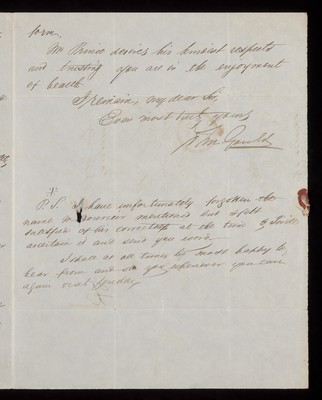 form.
Mr Prince desires his kindest respects
and trusting you are in the enjoyment
of health
I remain, my dear Sir,
Ever most truly yours,
John Gould
P.S. I have unfortunately forgotten the
name mentioned but I felt
of his correctness at the time & I will
ascertain it and send you word
I shall at all times be most happy to
hear from and see you whenever you can
again visit Sydney